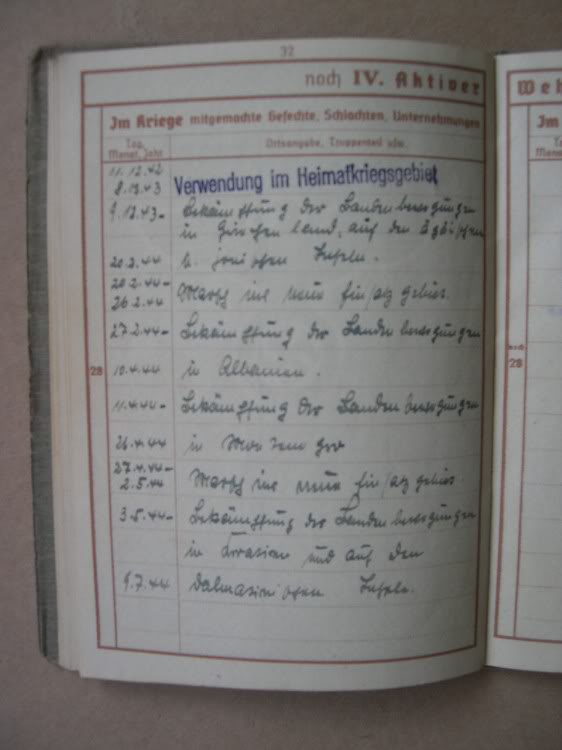 32
noch IV. Aktiver
Im Kriege mitgemachte Gefechte, Schlachten, Unternehmungen
Tag, Monat, Jahr
Ortsangabe, Truppenteil usw.
11.12.42
8.12.43 Verwendung im Heimatkriegsgebiet
9.12.43- Bekämpfung der Bandenbewegungen
in Griechenland, auf den Ägäischen
20.2.44 u. jonischen Inseln.
20.2.44-
26.2.44 Marsch ins neue Einsatzgebiet.
27.2.44- Bekämpfung der Bandenbewegungen
28 10.4.44 in Albanien.
11.4.44- Bekämpfung der Bandenbewegungen
26.4.44 in Montenegro
27.4.44-
2.5.44 Marsch ins neue Einsatzgebiet.
3.5.44- Bekämpfung der Bandenbewegungen
in Kroatien und auf den
9.7.44 Dalmatinischen Inseln.
Im
28